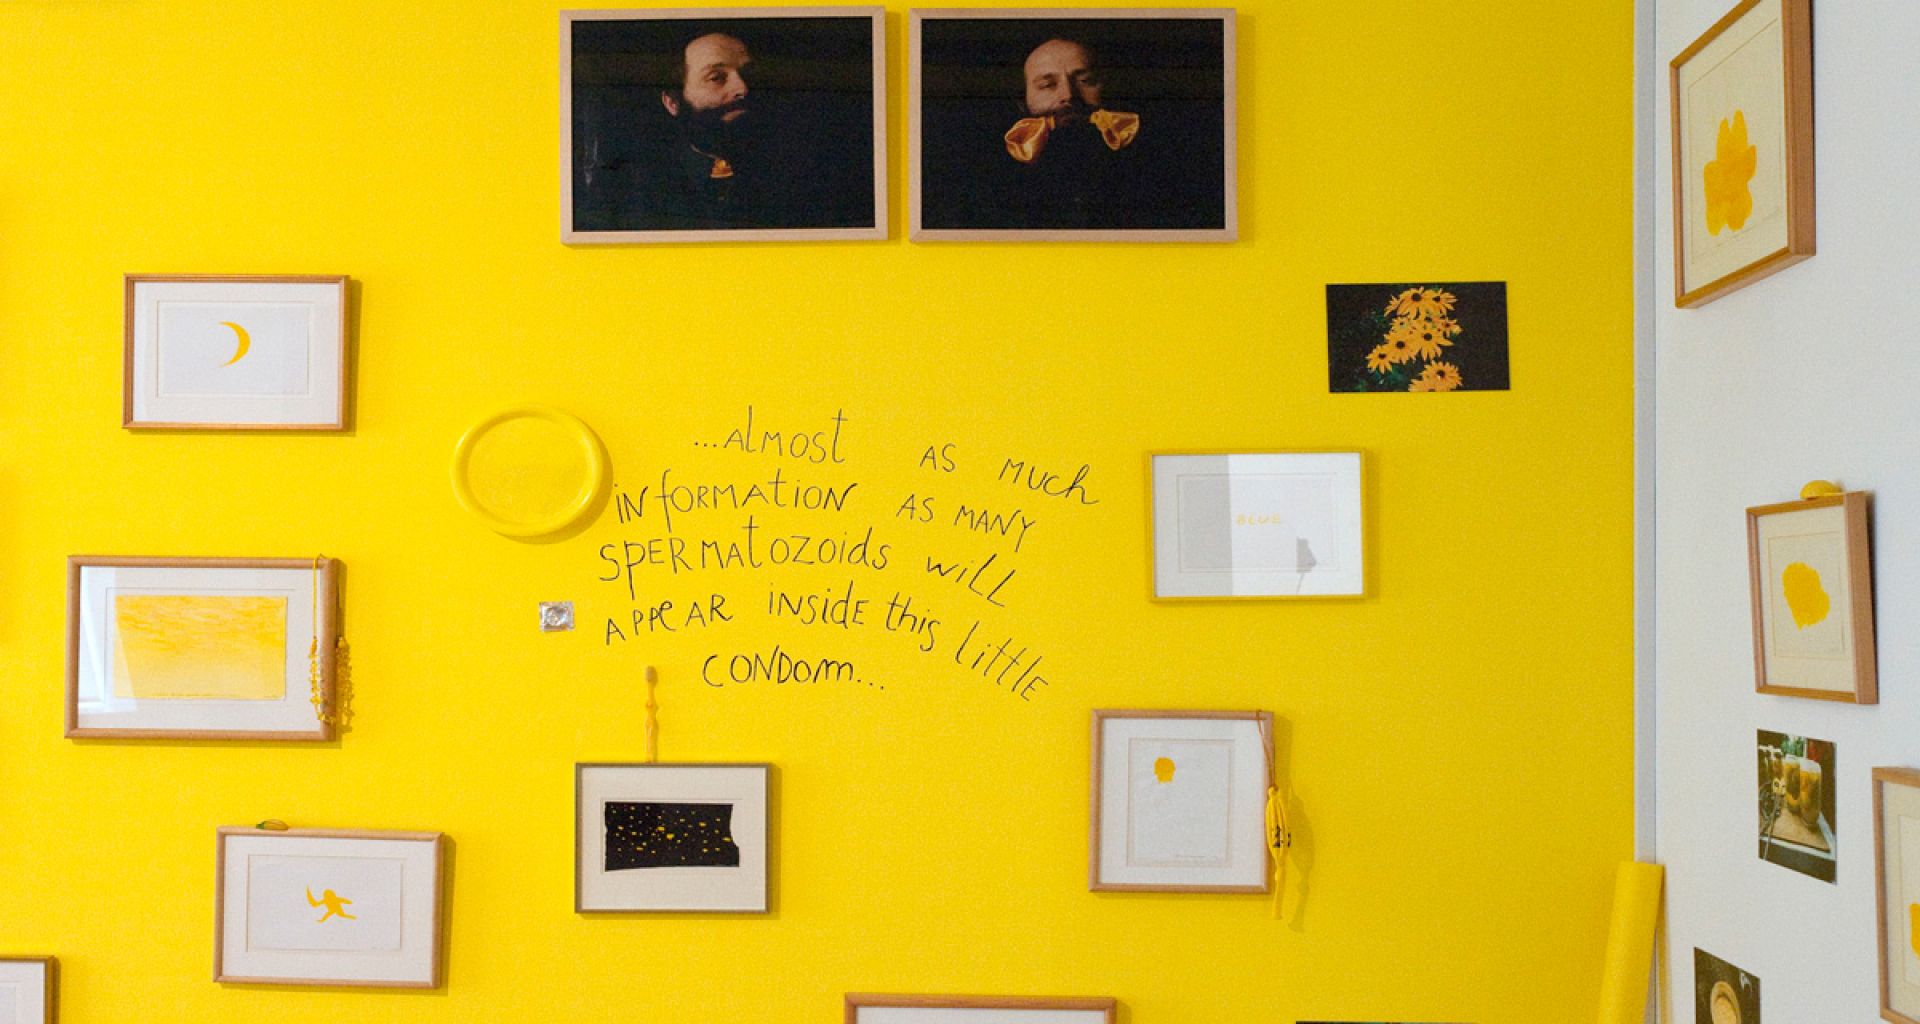 ...Almost AS MUCH
INFORMATION AS MANY
SPERMATOZOIDS WILL
APPEAR INSIDE this little
CONDOM...
BLUE